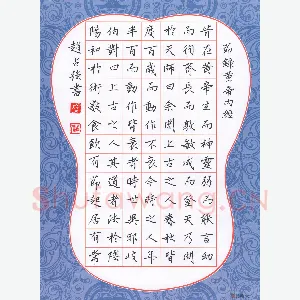 節錄黃帝內經
昔在黃帝生而神靈弱而能言幼
而徇齊長而敦敏成而登天乃問
於天師曰余聞上古之人春秋皆
度百歲而動作不衰今時之人年
半百而動作皆衰者時世異邪岐
伯對曰上古之人其道者法於陰
陽和於術數食飲有節起居有常
趙書
Shufawang.CN